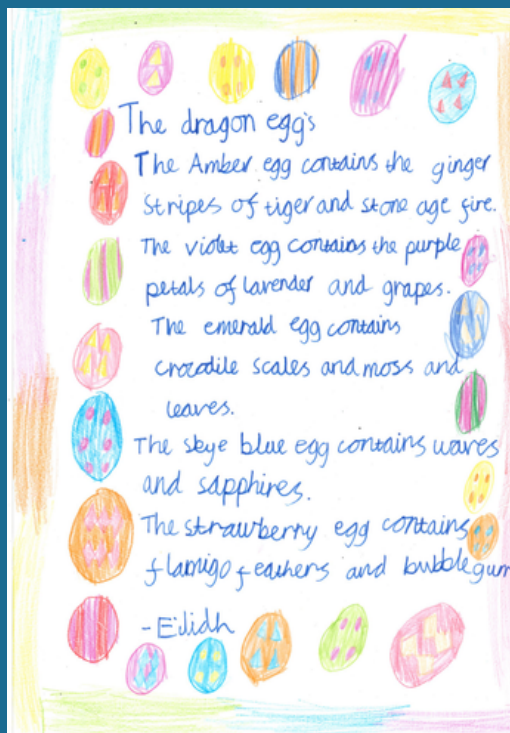 The dragon egg's
The Amber egg contains the ginger
stripes of tiger and stone age fire.
The violet egg contains the purple
petals of lavender and grapes.
The emerald egg contains
crocodile scales and moss and
leaves.
The skye blue egg contains waves
and sapphires.
The strawberry egg contains
flamigo feathers and bubblegum
-Eilidh